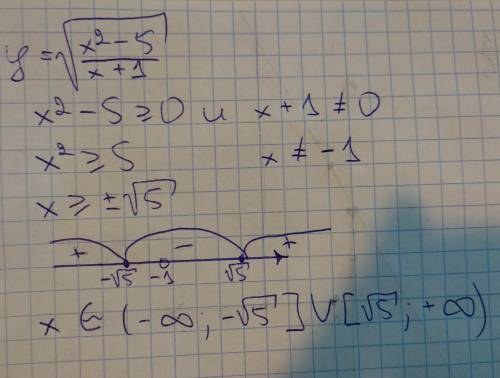 y = √((x² - 5)/(x + 1))
x² - 5 ≥ 0 и x + 1 ≠ 0
x² ≥ 5 x ≠ -1
x ≥ ±√5
+ - +
-√5 -1 √5
x ∈ (-∞; -√5] ∪ [√5; +∞)